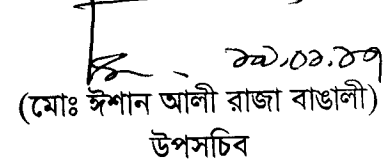 ১৯.০১.১৭
(মোঃ ঈশান আলী রাজা বাঙালী)
উপসচিব